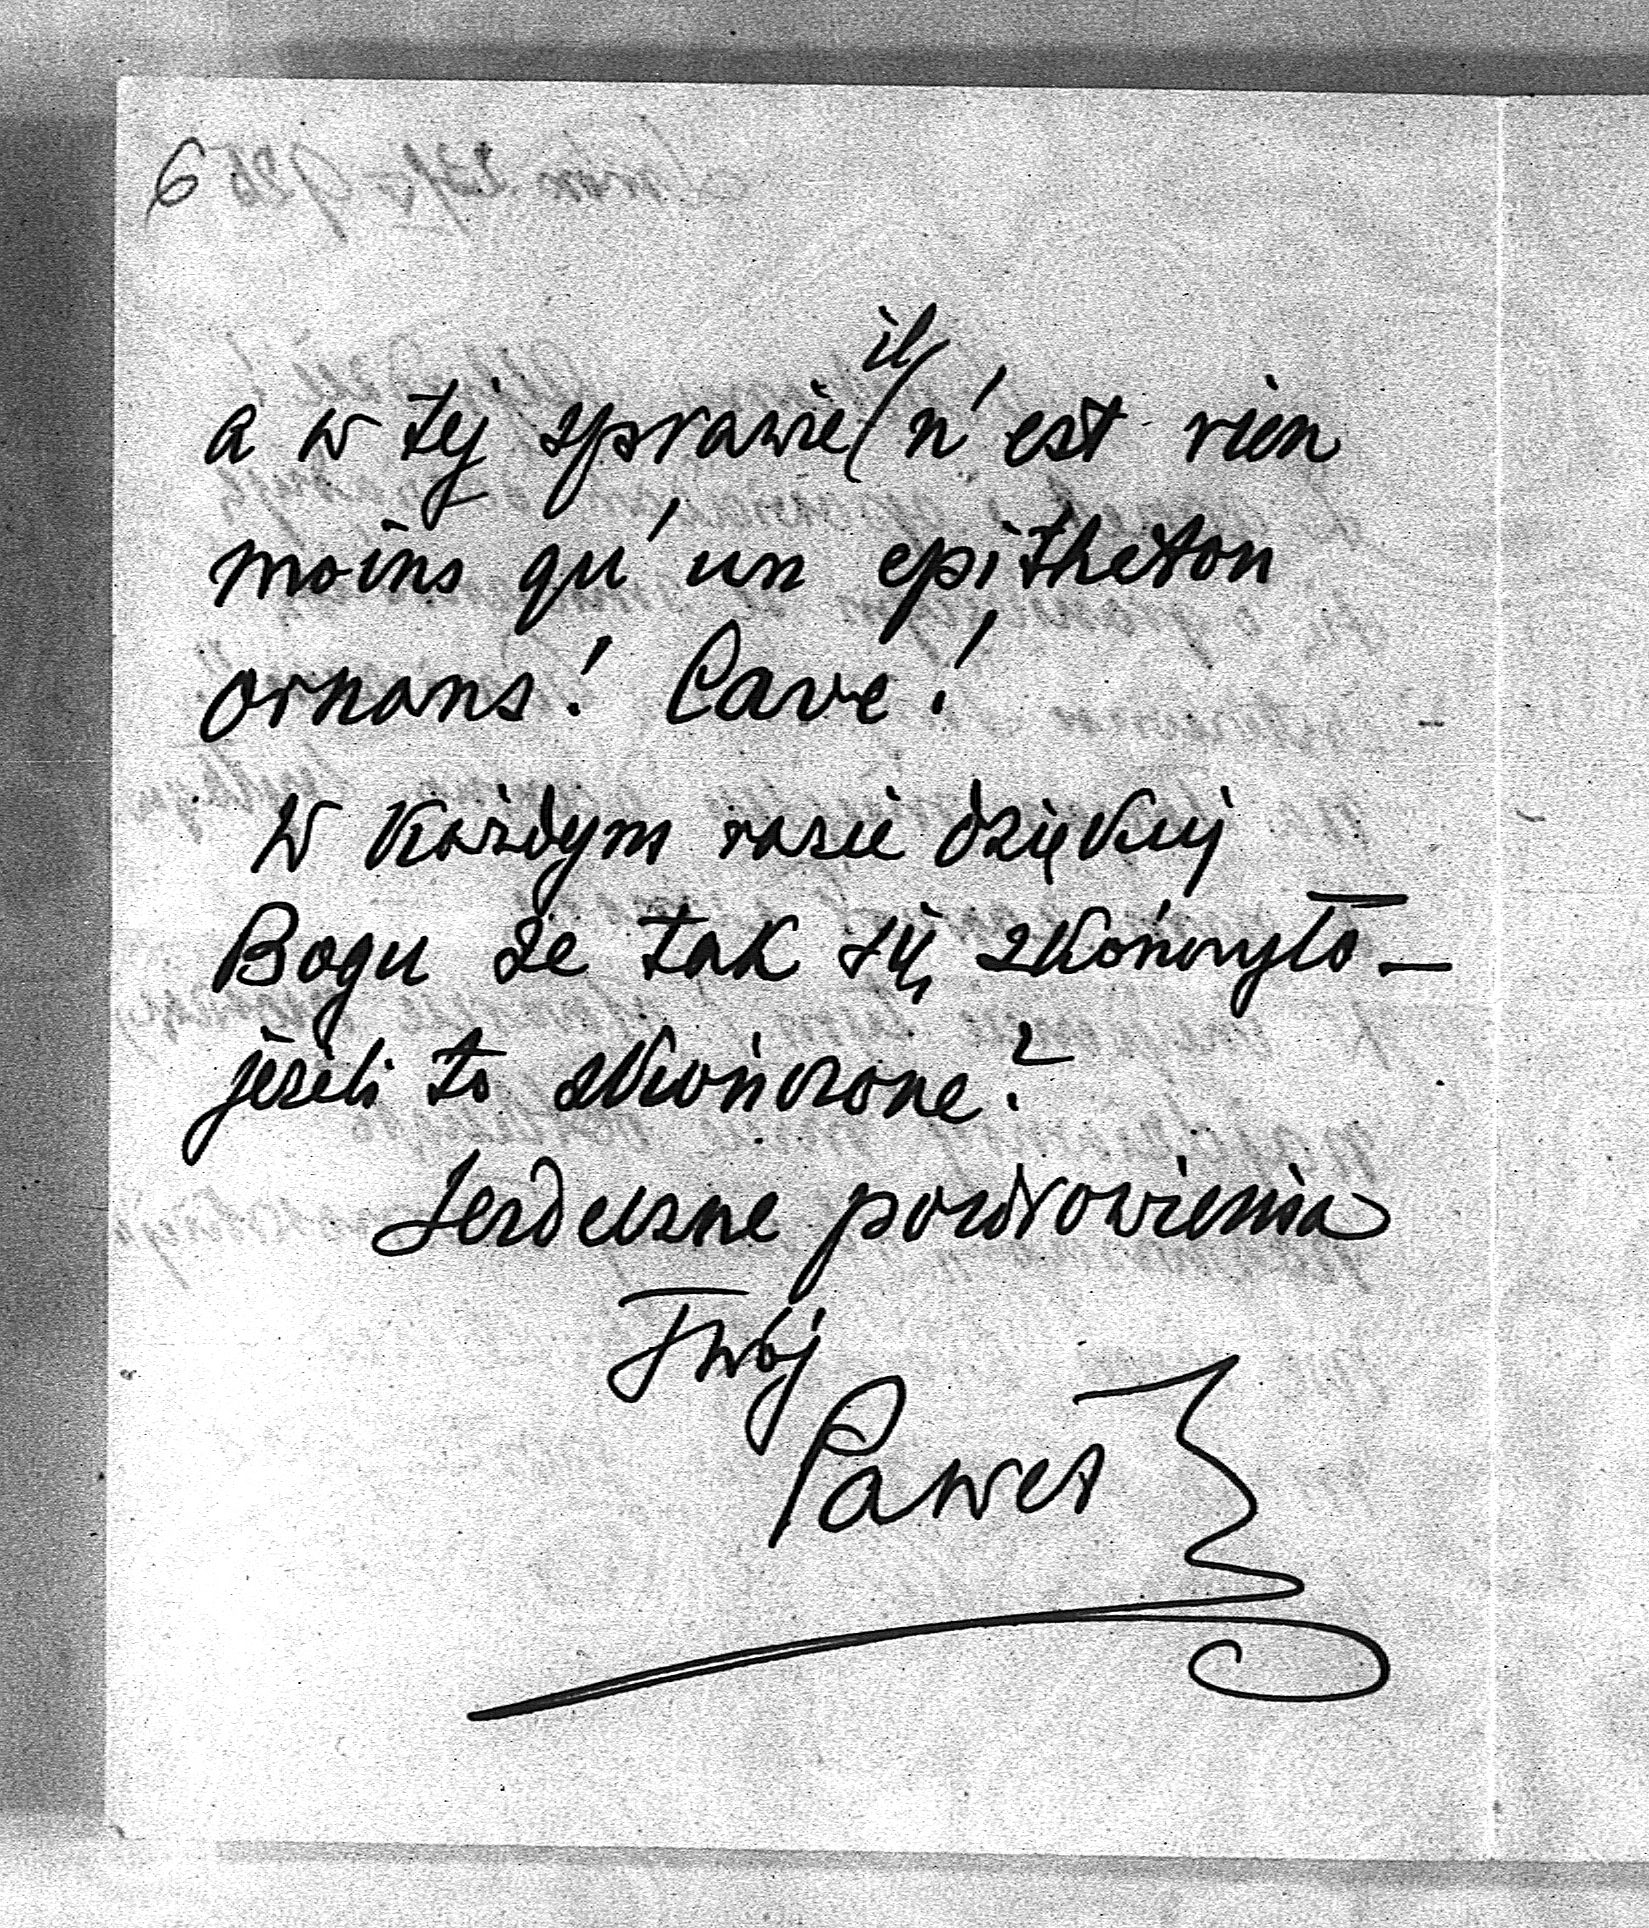 6
a w tej sprawie il n'est rien
moins qu'un epitheton
ornans! Cave!
W każdym razie dziękuj
Bogu że tak się zkończyło –
jeżeli to zkończone?
Serdeczne pozdrowienia
Twój
Paweł